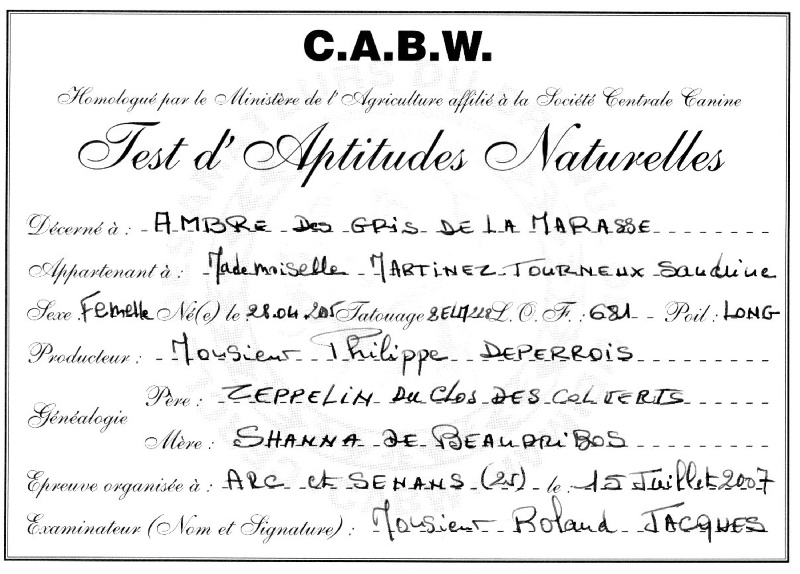 C.A.B.W.
Homologué par le Ministère de l'Agriculture affilié à la Société Centrale Canine
Test d'Aptitudes Naturelles
Décerné à : AMBRE DES GRIS DE LA MARASSE
Appartenant à : Mademoiselle MARTINEZ-TOURNEUX Sandrine
Sexe : Femelle Né(e) le 28.04.205 Tatouage L.O.F. : 681 Poil : LONG
Producteur : Monsieur Philippe DEPERROIS
Généalogie
Père : ZEPPELIN DU CLOS DES COLVERTS
Mère : SHANNA DE BEAUDRIBOS
Epreuve organisée à : ARC et SENANS (25) le : 15 Juillet 2007
Examinateur (Nom et Signature) : Monsieur Roland JACQUES